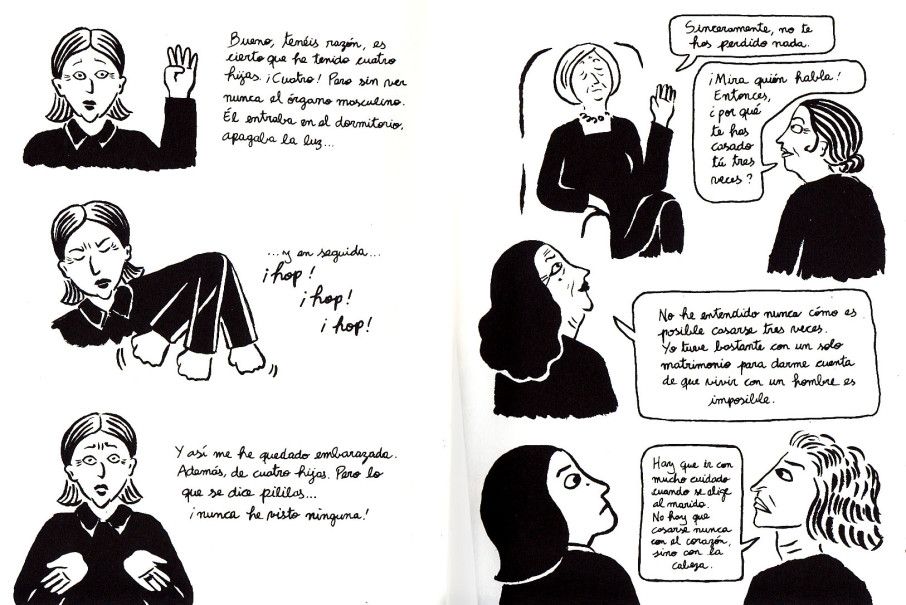 Bueno, tenéis razón, es
cierto que he tenido cuatro
hijas. ¡Cuatro! Pero sin ver
nunca el órgano masculino.
Él entraba en el dormitorio,
apagaba la luz...
...y en seguida...
¡hop!
¡hop!
¡hop!
Y así me he quedado embarazada.
Además, de cuatro hijas. Pero lo
que se dice pililas...
¡nunca he visto ninguna!
Sinceramente, no te
has perdido nada.
¡Mira quién habla!
Entonces,
¿por qué
te has
casado
tú tres
veces?
No he entendido nunca cómo es
posible casarse tres veces.
Yo tuve bastante con un solo
matrimonio para darme cuenta
de que vivir con un hombre es
imposible.
Hay que ir con
mucho cuidado
cuando se elige
al marido.
No hay que
casarse nunca
con el corazón,
sino con la
cabeza.